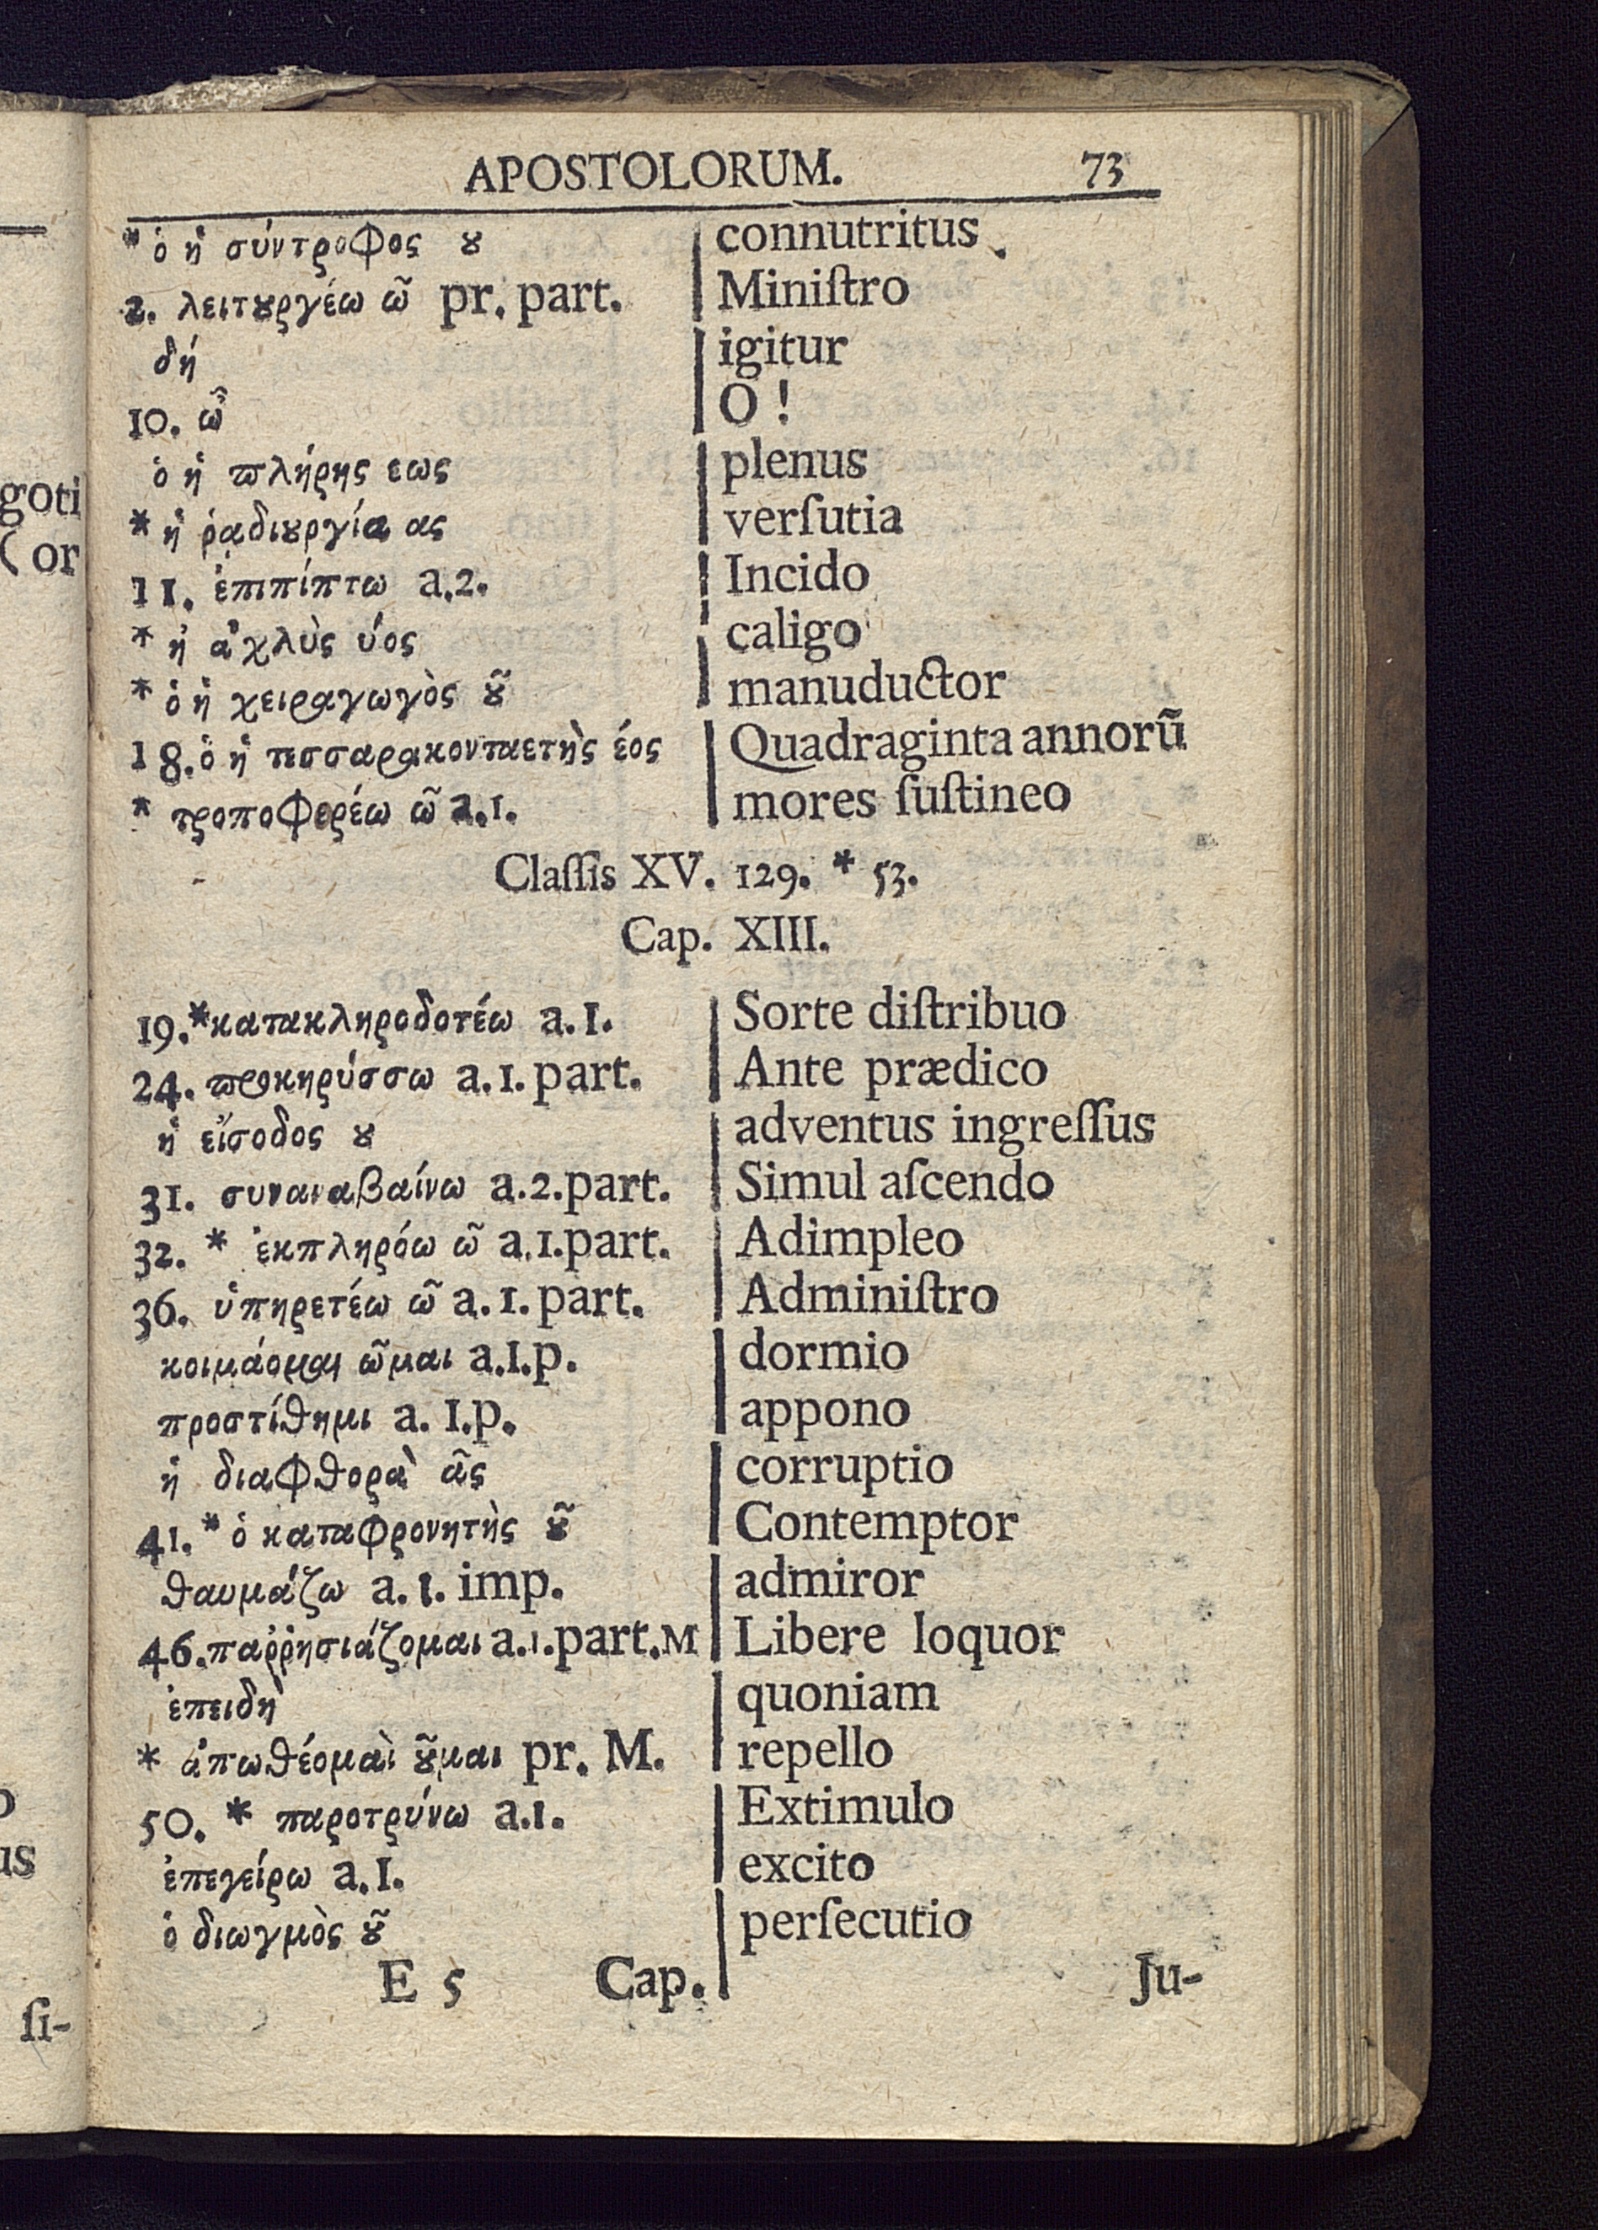 APOSTOLORUM. 73
* ὁ ἡ σύντροφος ȣ connutritus.
2. λειτȣργέω ῶ pr. part. Miniſtro
δή igitur
10. ὦ O !
ὁ ἡ πλήρης εως plenus
* ἡ ῥᾳδιȣργία ας verſutia
11. ἐπιπίπτω a.2. Incido
* ἡ ἀχλὺς ύος caligo
* ὁ ἡ χειραγωγὸς ȣ͂ manuductor
18. ὁ ἡ τεσσαρακονταετὴς έος Quadraginta annorũ
* τροποφορέω ῶ a.1. mores ſuſtineo
Claſſis XV. 129. * 53.
Cap. XIII.
19.*κατακληροδοτέω a.1. Sorte diſtribuo
24. προκηρύσσω a.1. part. Ante prædico
ἡ εἴσοδος ȣ adventus ingreſſus
31. συναναβαίνω a.2.part. Simul aſcendo
32. * ἐκπληρόω ῶ a.1.part. Adimpleo
36. ὑπηρετέω ῶ a.1.part. Adminiſtro
κοιμάομαι ῶμαι a.1.p. dormio
προστίθημι a. 1.p. appono
ἡ διαφθορὰ ᾶς corruptio
41. * ὁ καταφρονητὴς ȣ͂ Contemptor
θαυμάζω a. 1. imp. admiror
46.παῤῥησιάζομαι a.1.part.M Libere loquor
ἐπειδὴ quoniam
* ἀπωθέομαὶ ȣ͂μαι pr. M. repello
50. * παροτρύνω a.1. Extimulo
ἐπεγείρω a.1. excito
ὁ διωγμὸς ȣ͂ perſecutio
E 5 Cap. Ju-
goti
( or
us
ſi-